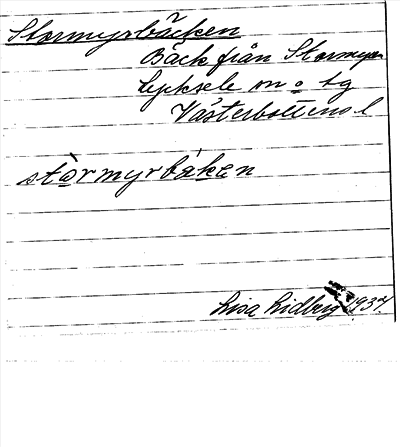 Stormyrbäcken
Bäck från Stormyren
Lycksele sn o tg
Västerbottens l
stòrmyrbäkən
Lisa Lidberg 1937.